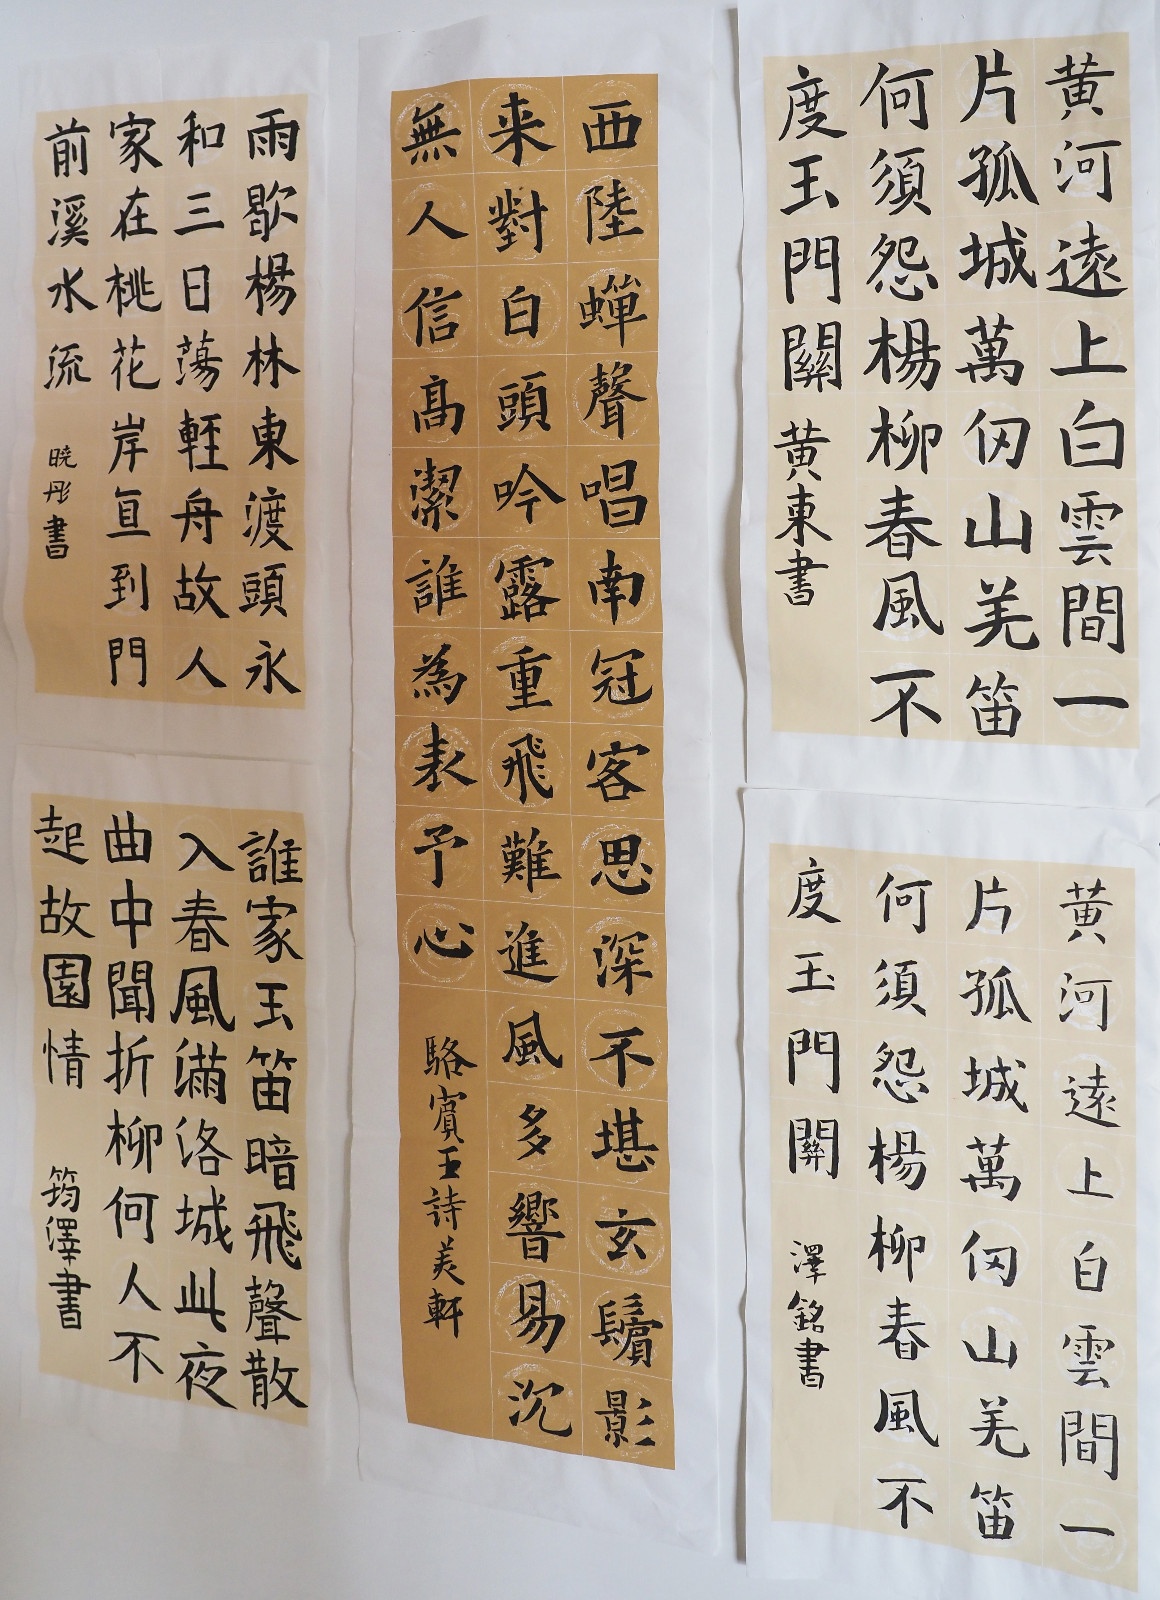 黄河遠上白雲間一
片孤城萬仞山羌笛
何須怨楊柳春風不
度玉門關
黄東書
黄河遠上白雲間一
片孤城萬仞山羌笛
何須怨楊柳春風不
度玉門關
澤銘書
西陸蟬聲唱南冠客思深不堪玄鬢影
来對白頭吟露重飛難進風多響易沉
無人信高潔誰為表予心
駱賓王詩美軒
雨歇楊林東渡頭永
和三日蕩輕舟故人
家在桃花岸直到門
前溪水流
曉彤書
誰家玉笛暗飛聲散
入春風滿洛城此夜
曲中聞折柳何人不
起故園情
筠澤書